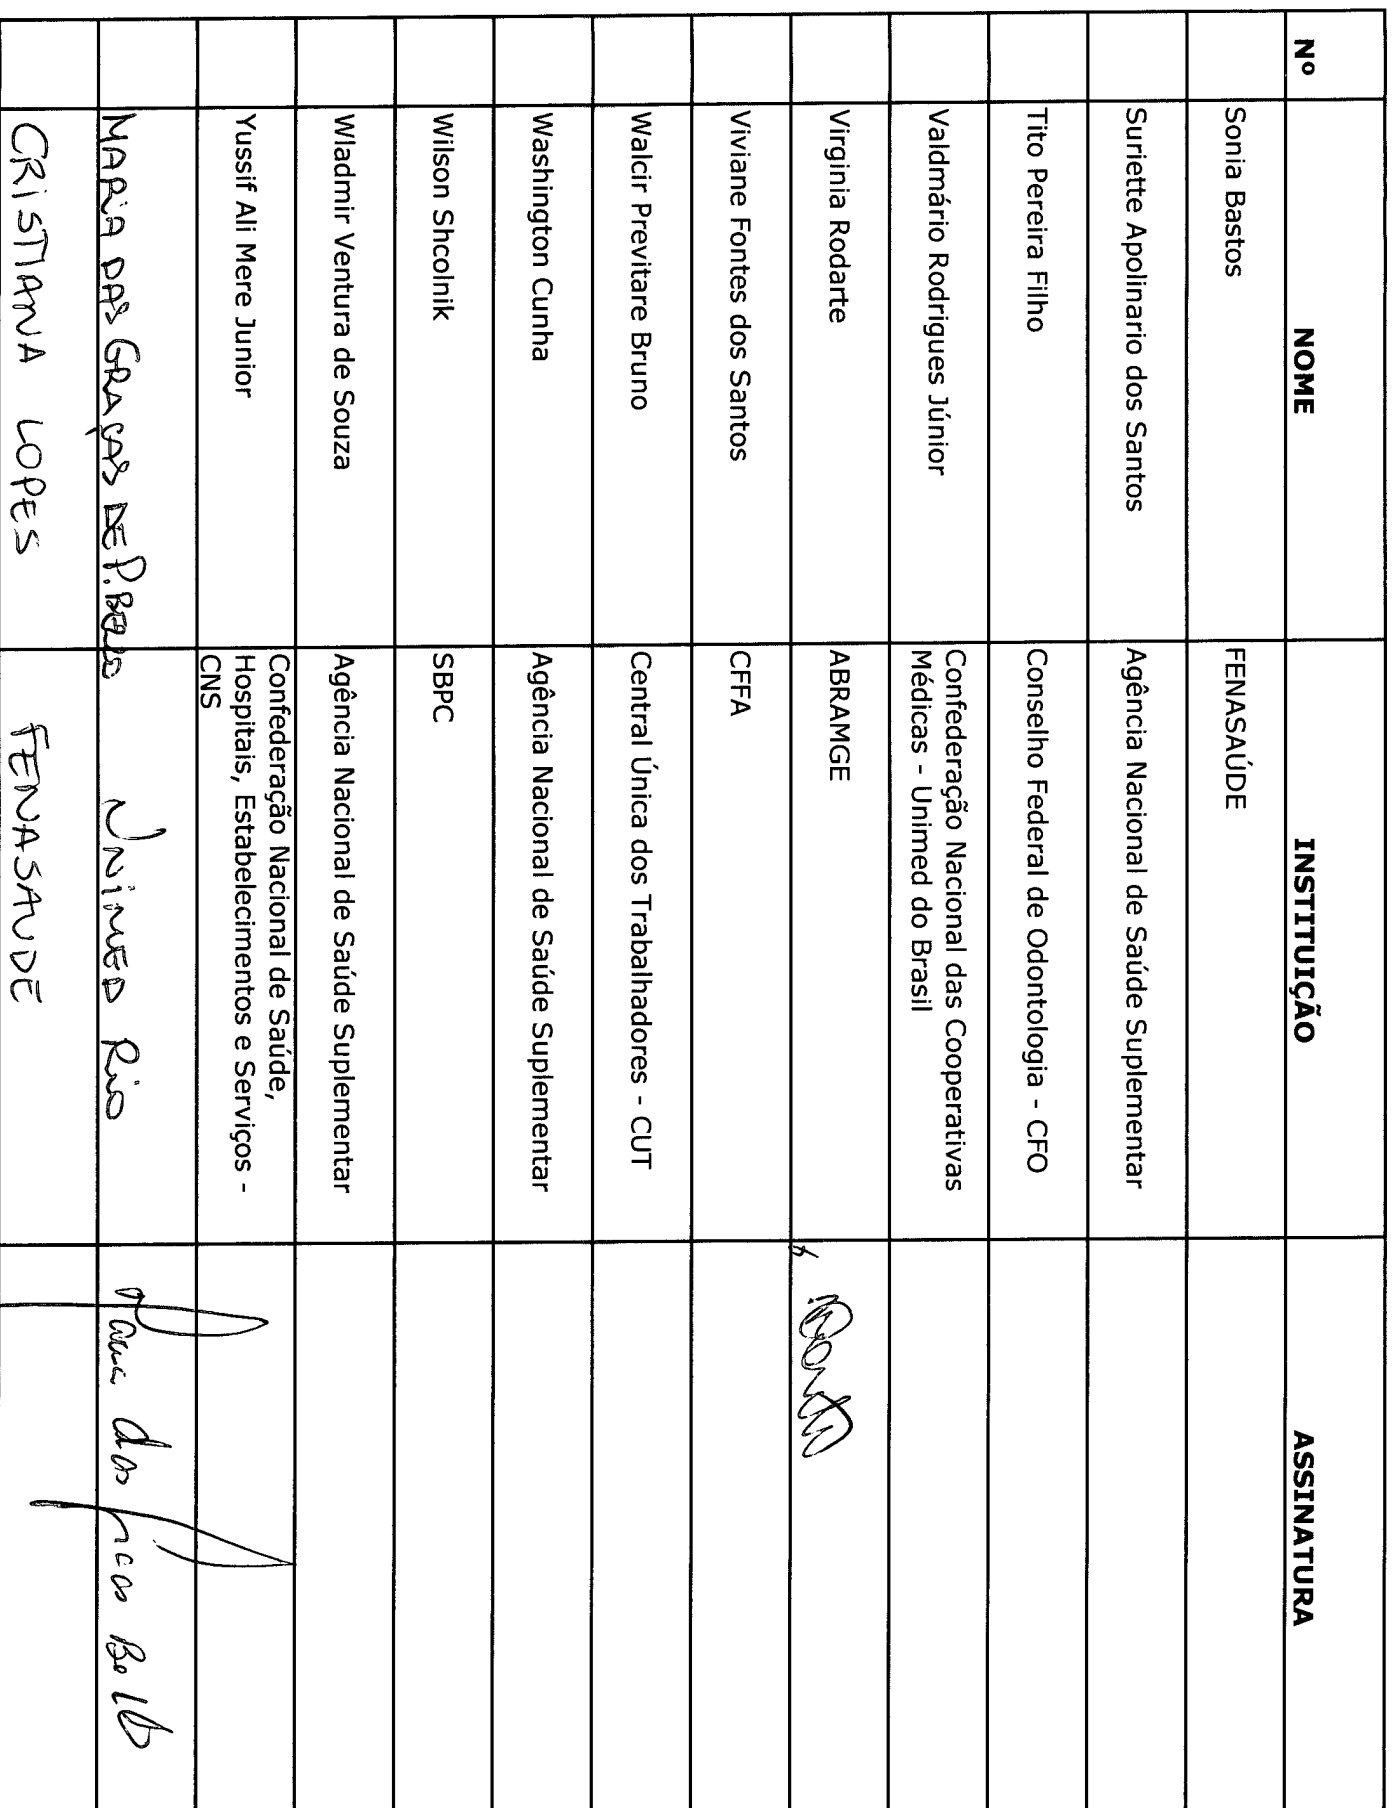 Nº NOME INSTITUIÇÃO ASSINATURA
Sonia Bastos FENASAÚDE
Suriette Apolinario dos Santos Agência Nacional de Saúde Suplementar
Tito Pereira Filho Conselho Federal de Odontologia - CFO
Valdmário Rodrigues Júnior Confederação Nacional das Cooperativas
Médicas - Unimed do Brasil
Virginia Rodarte ABRAMGE
Viviane Fontes dos Santos CFFA
Walcir Previtare Bruno Central Única dos Trabalhadores - CUT
Washington Cunha Agência Nacional de Saúde Suplementar
Wilson Shcolnik SBPC
Wladmir Ventura de Souza Agência Nacional de Saúde Suplementar
Yussif Ali Mere Junior Confederação Nacional de Saúde,
Hospitais, Estabelecimentos e Serviços -
CNS
MARIA DAS GRAÇAS DE P. BELLO UNIMED RIO
CRISTIANA LOPES FENASAUDE